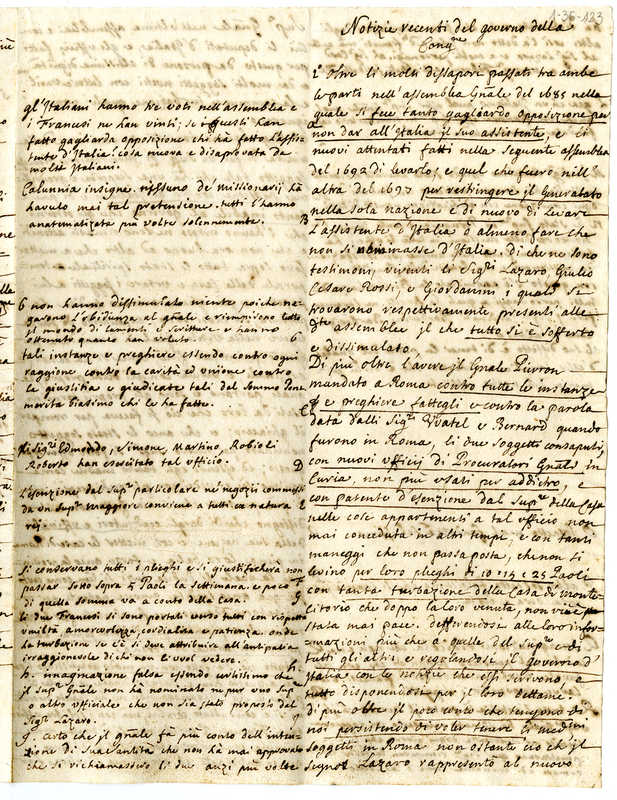 1-36-123
Notizie recenti del governo della
Cong.ne
gl'Italiani hanno tre voti nell'assemblea e
i Francesi ne han vinti; se questi han
fatto gagliarda opposizione chi hà fatto l'assis-
tente d'Italia! cosa nuova e disaprovata da
molti Italiani.
Calunnia insigne. nissuno de' missionarij hà
havuto mai tal pretensione. tutti l'hanno
anatematizata più volte solennemente.
6 non hanno dissimulato niente poiche ne-
garono l'obidienza al gnale e riempirono tutto
il mondo di lamenti e scritture e hanno
ottenuto quanto han voluto. 6
tali instanze e preghiere essendo contro ogni
raggione contro la carità ed unione contro
le giustitia e giudicate tali dal Sommo Pont.
merita biasimo chi le ha fatte.
li Sig.ri Edmondo, Simone, Martino, Robioli
Roberto han esercitato tal ufficio.
D
L'esenzione dal Sup.re particolare ne' negozii commessi
da un Sup.re maggiore conviene a tutti ex natura E
rei.
Si conservano tutti i plieghi e si giustificherà non
passar sotto sopra 5 Paoli la settimana e poco F
di quella somma va a conto della Casa. G
li due Francesi si sono portati verso tutti con rispetto
umiltà amorvolezza cordialità e patienza. onde
la turbazione se c'è si deve attribuire all'antipatia
irraggionevole di chi non li vol vedere.
h. immaginazione falsa essendo certissimo che h.
il Sup.re Gnale non hà nominato ne pur uno Sup.re
o altro officiale che non sia stato proposto dal
Sig.r Lazaro.
g. certo che il gnale fà più conto dell'inten-
zione di Sua Santità che non hà mai approvato
che si richiamassero li due anzi più volte
1.° Oltre li molti dissapori passati tra ambe
le parti nell'assemblea Gnale del 1685 nella
quale si fece tanto gagliardo opposizione per
non dar all'Italia il suo assistente, e li
nuovi attentati fatti nella seguente assemblea
del 1692 di levarlo; e quel che fuero nell'
altra del 1697 per restringere il Generalato
nella sola nazione e di nuovo di levare
B L'assistente d'Italia ò almeno fare che
non si chiamasse d'Italia. di che ne sono
testimoni, viventi li Sig.ri Lazaro, Giulio
Cesare Rossi, e Giordanini i quali se
trovarono respettivamente presenti alle
d.te assemblee il che tutto si è sofferto
e dissimulato.
Di più oltre l'avere il Gnale Pierron
mandato a Roma contro tutte le instanze
C e preghiere fattegli e contro la parola
data dalli Sig.ri Watel e Bernard quando
furono in Roma, li due soggetti consaputi,
con nuovi ufficij di Procuratori Gnali in
Curia, non più usati per addietro, e
con patente d'esenzione dal Sup.re della Casa
nelle cose appartenenti a tal ufficio non
mai conceduta in altri tempi; e con tanti
maneggi che non passa posta, che non si
levino per loro plieghi di 10 15 e 25 Paoli
con tanta turbazione della Casa di monte
Citorio che doppo la loro venuta, non vi è
stata mai pace. defferendosi alle loro infor-
mazioni più che a quelle del Sup.re e di
tutti gli altri e regolandosi il governo d'
Italia con le notizie che essi scrivono e
tutto disponendosi per il loro dettame.
di più oltre il poco conto che tengono di
noi persistendo di voler tenere li med.mi
soggetti in Roma non ostante ciò ch il
signor Lazaro rappresentò al nuovo